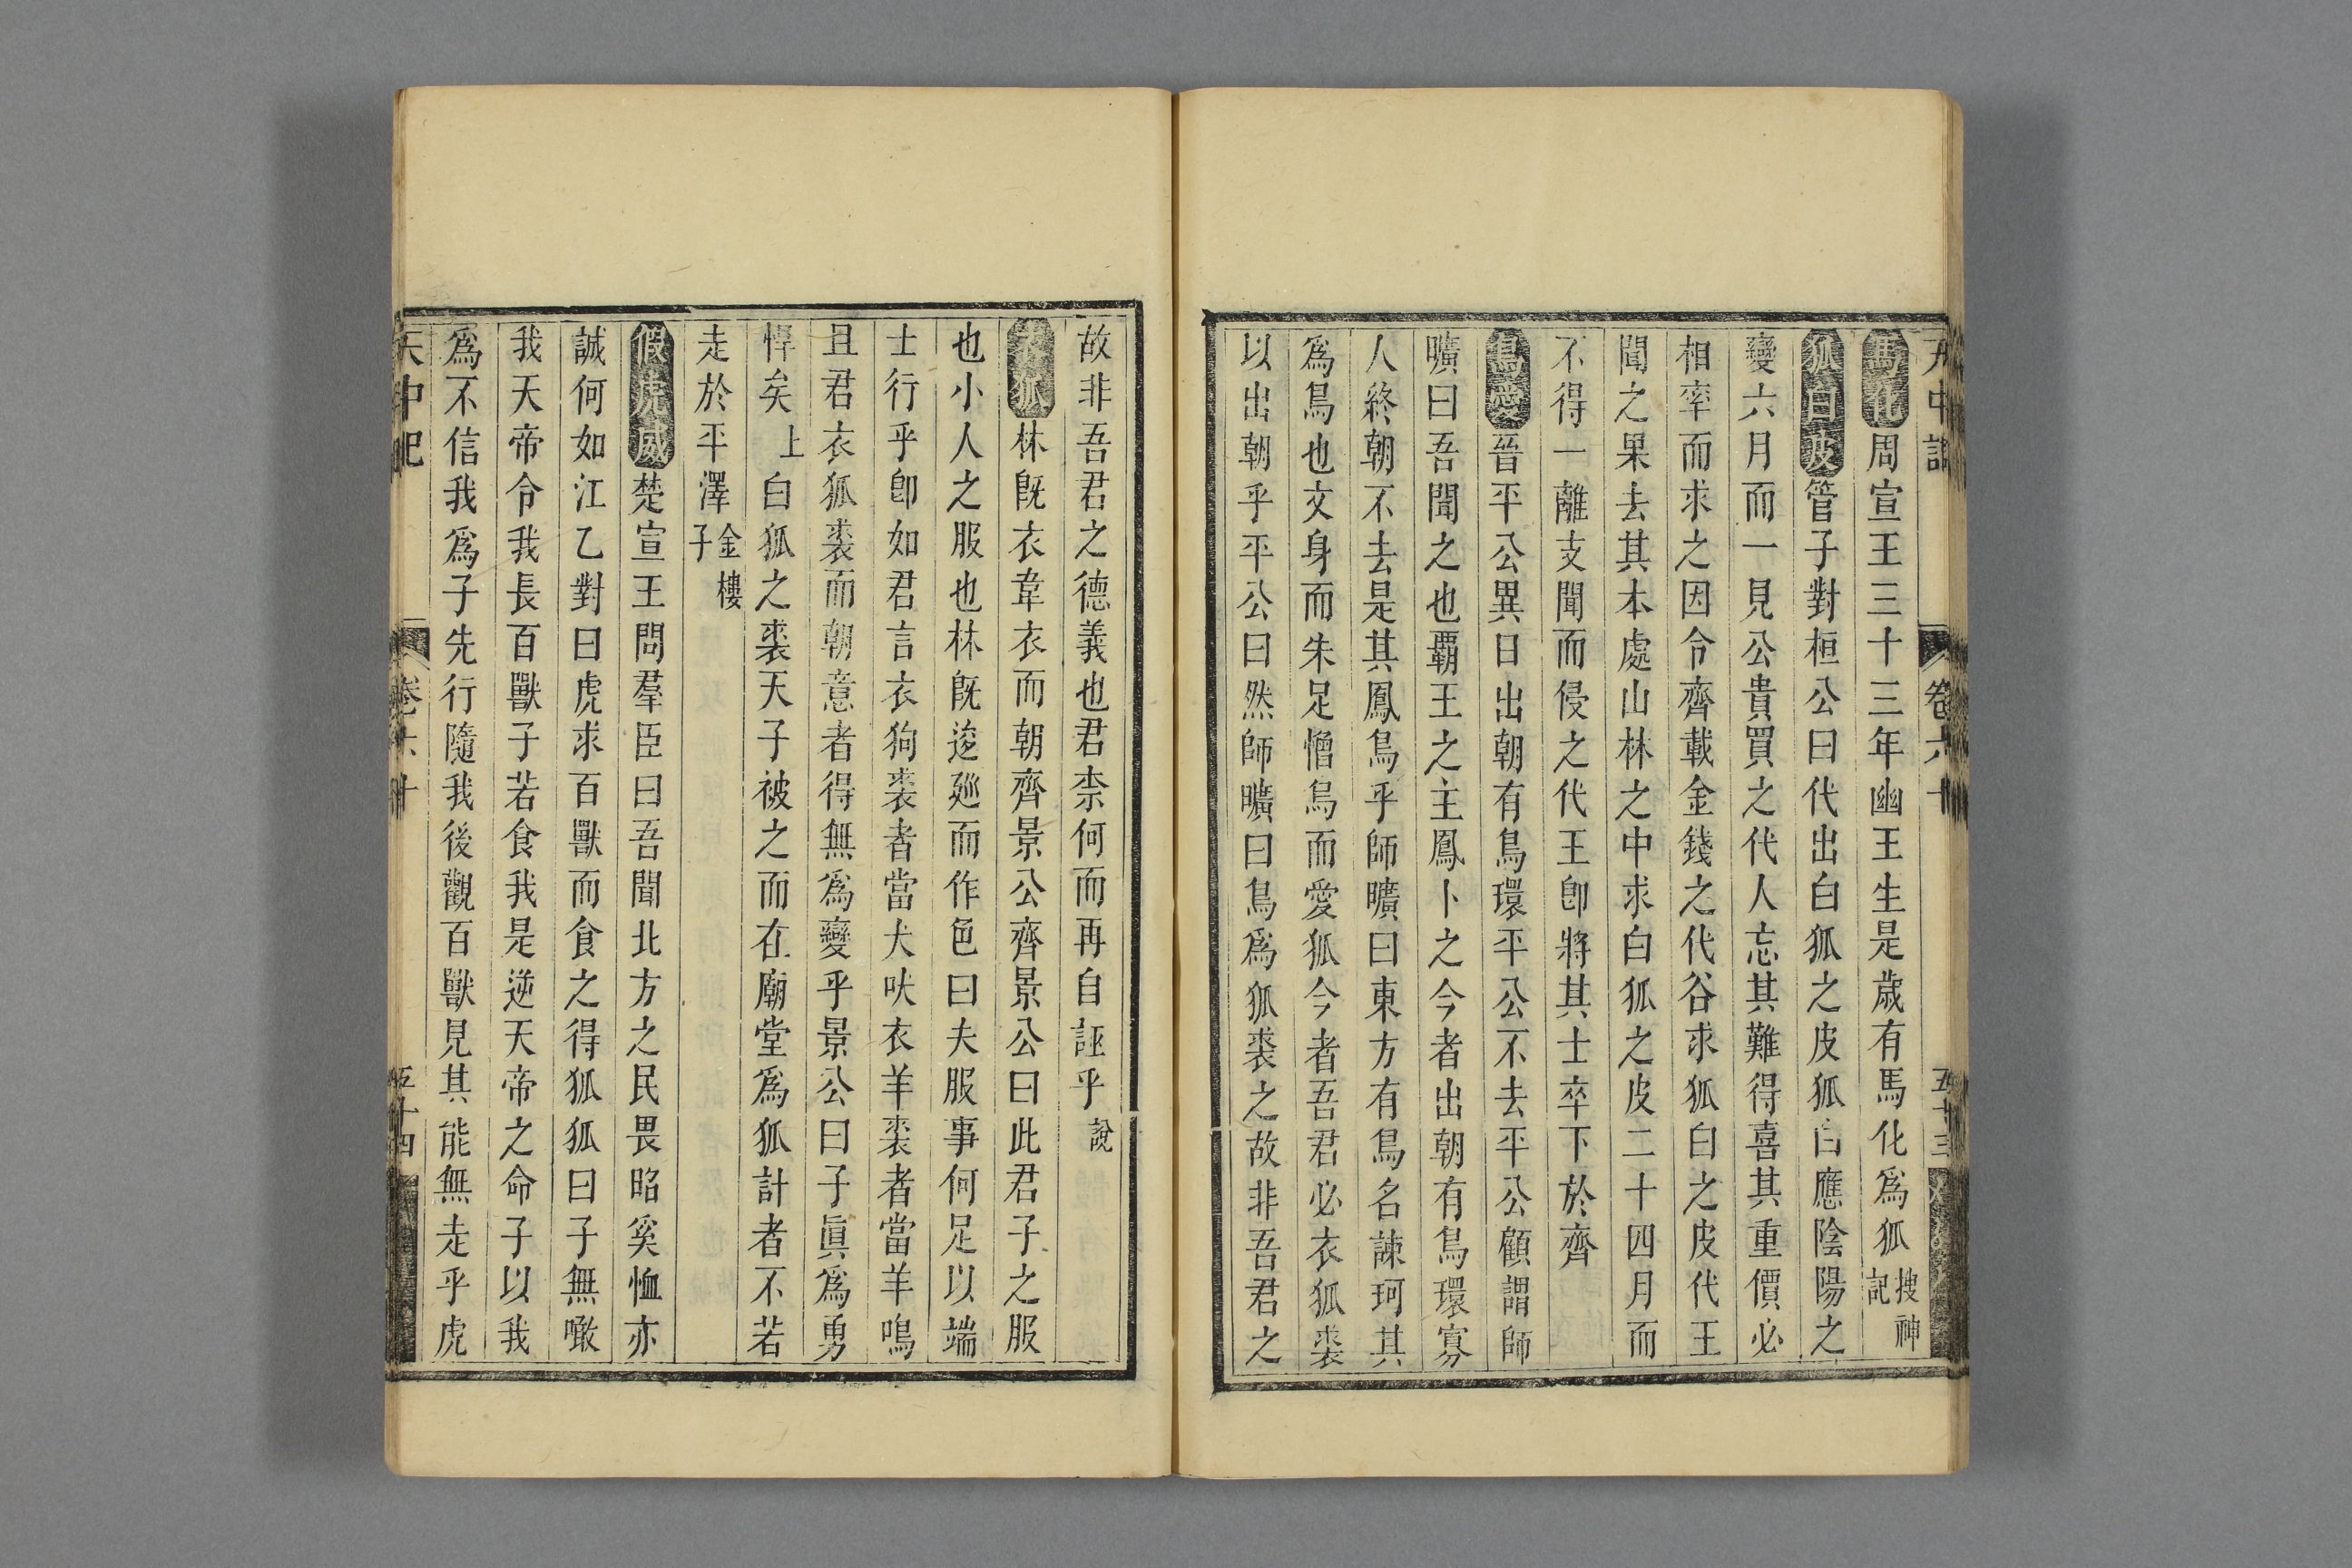 馬化周宣王三十三年幽王生是歲有馬化爲狐搜神記
狐白皮管子對桓公曰代出白狐之皮狐白應陰陽之
變六月而一見公貴買之代人忘其難得喜其重價必
相率而求之因令齊載金錢之代谷求狐白之皮代王
聞之果去其本處山林之中求白狐之皮二十四月而
不得一離支聞而侵之代王卽將其士卒下於齊
鳥愛晉平公異日出朝有鳥環平公不去平公顧謂師
曠曰吾聞之也霸王之主鳳卜之今者出朝有鳥環寡
人終朝不去是其鳳鳥乎師曠曰東方有鳥名諫珂其
爲鳥也文身而朱足憎鳥而愛狐今者吾君必衣狐裘
以出朝乎平公曰然師曠曰鳥爲狐裘之故非吾君之
卷六十
五十三
故非吾君之德義也君柰何而再自誣乎說
狐林旣衣韋衣而朝齊景公齊景公曰此君子之服
也小人之服也林旣逡廵而作色曰夫服事何足以端
士行乎卽如君言衣狗裘者當犬吠衣羊裘者當羊鳴
且君衣狐裘而朝意者得無爲變乎景公曰子眞爲勇
悍矣上白狐之裘天子被之而在廟堂爲狐計者不若
走於平澤金樓子
假虎威楚宣王問羣臣曰吾聞北方之民畏昭奚恤亦
誠何如江乙對曰虎求百獸而食之得狐狐曰子無噉
我天帝令我長百獸子若食我是逆天帝之命子以我
爲不信我爲子先行隨我後觀百獸見其能無走乎虎
天中記
卷六十
五十四